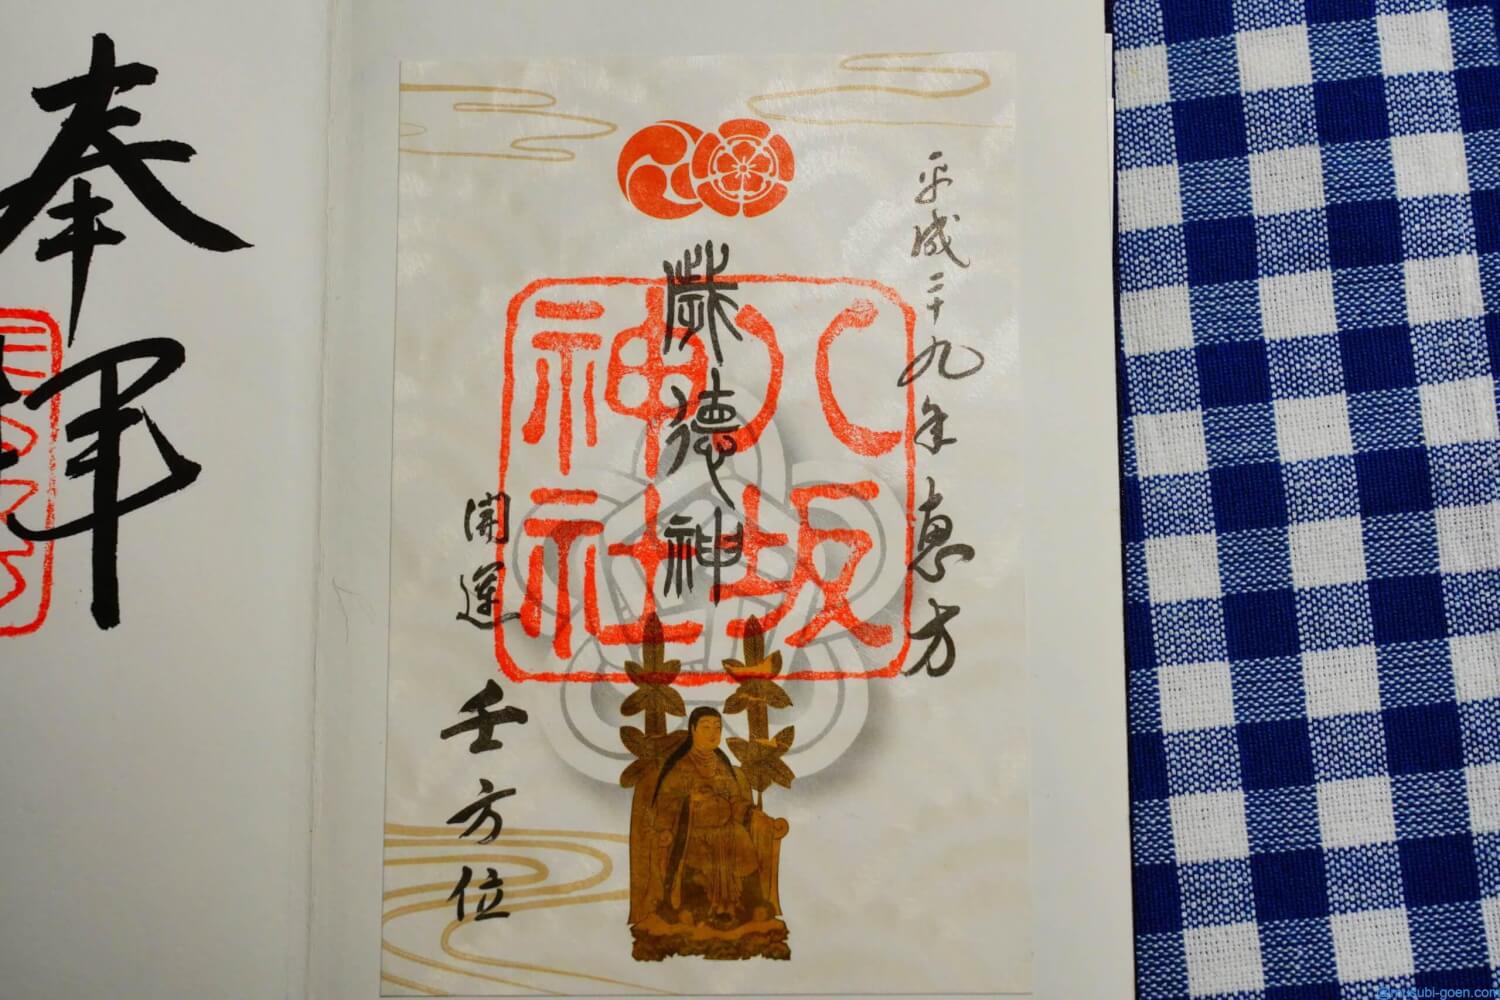 平成二十九年恵方
歳德神
八坂
神社
開運 壬方位
奉拝
musubi-goen.com